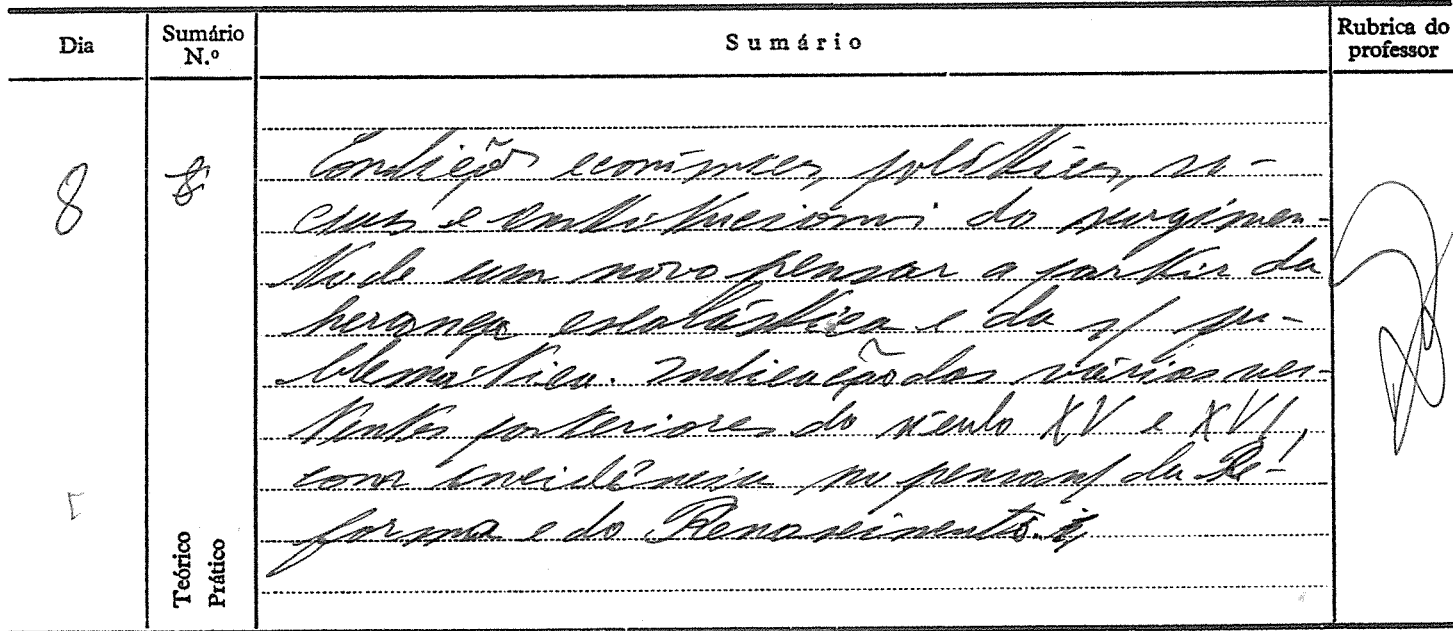 Dia
Sumário N.º
Sumário
Rubrica do professor
8
8
Condições económicas, políticas, so-
ciais e institucionais do surgimen-
to de um novo pensar a partir da
herança escolástica e da s/ pro-
blemática. Indicação das várias ver-
tentes posteriores do século XV e XVI,
com incidência no pensam/ da Re-
forma e do Renascimento.
Teórico
Prático